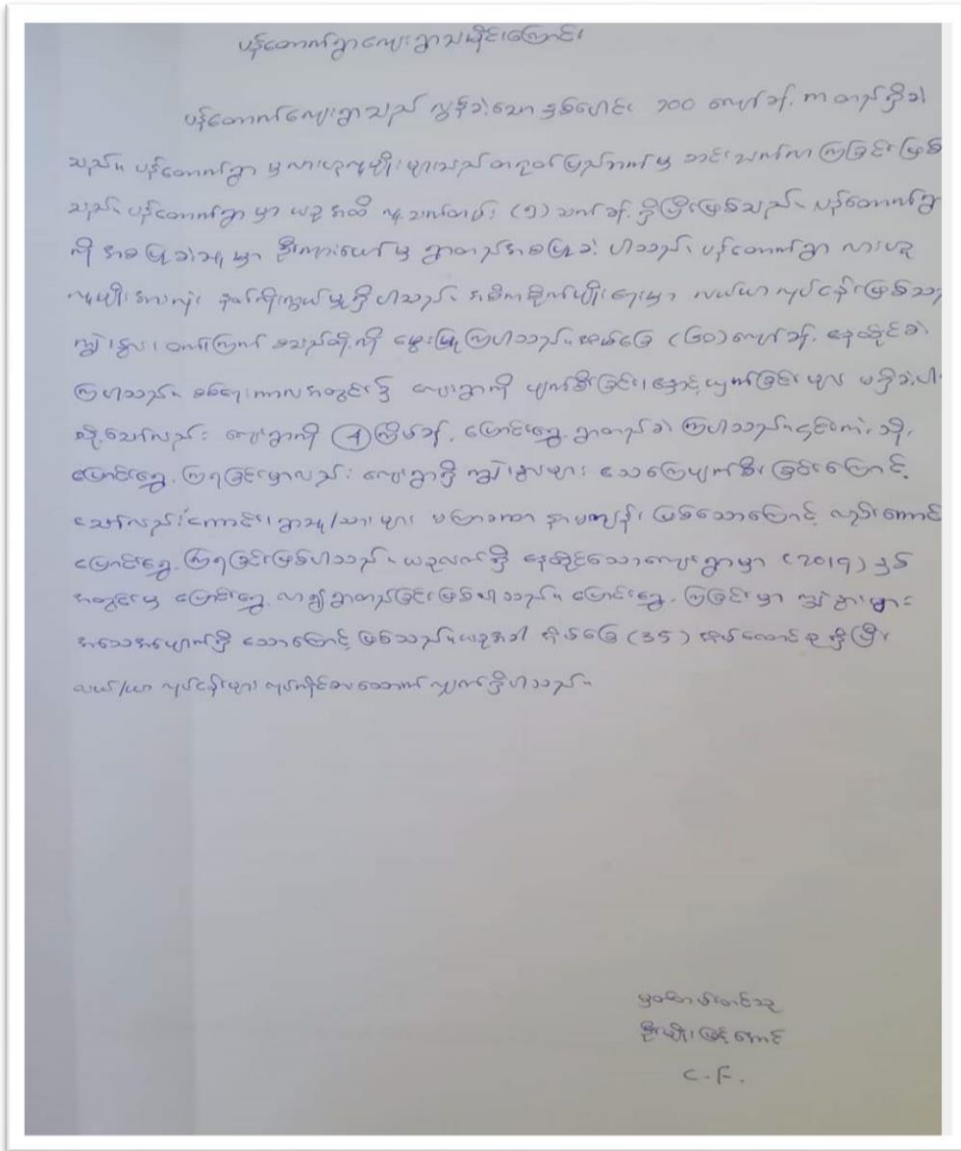 ပန်တောက်ရွာကျေးရွာသမိုင်းကြောင်း
ပန်တောက်ကျေးရွာသည် လွန်ခဲ့သော နှစ်ပေါင်း ၇၀၀ ကျော်ခန့်ကတည်ရှိခဲ့
သည်။ ပန်တောက်ရွာမှ လားဟူလူမျိုးများသည် တရုတ်ပြည်ဘက်မှ ဆင်းသက်လာကြခြင်းဖြစ်
သည်။ ပန်တောက်ရွာမှာ ယခုအထိ လူ့သက်တမ်း (၅) သက်ခန့်ရှိပြီဖြစ်သည်။ ပန်တောက်ရွာ
ကို အစပြုခဲ့သူမှာ ဦးကျားပေါ်မှ ရွာတည်အစပြုခဲ့ပါသည်။ ပန်တောက်ရွာ လားဟူ
လူမျိုးအားလုံး နတ်ကိုးကွယ်မှုရှိပါသည်။ အဓိကစိုက်ပျိုးရေးမှာ လယ်ယာလုပ်ငန်းဖြစ်သည်
ကျွဲ၊ နွား၊ ဝက်၊ ကြက် စသည်တို့ကို မွေးမြူကြပါသည်။ အိမ်ခြေ (၆၀) ကျော်ခန့် နေထိုင်ခဲ့
ကြပါသည်။ စစ်ရေးကာလအတွင်း၌ ကျေးရွာကို ဖျက်ဆီးခြင်း၊ နှောင့်ယှက်ခြင်းမူလ မရှိခဲ့ပါ
သို့သော်လည်း ကျေးရွာကို ၄ ကြိမ်ခန့် ပြောင်းရွှေ့ ရွာတည်ခဲ့ကြပါသည်။ ၎င်းကဲ့သို့
ပြောင်းရွှေ့ကြရခြင်းမှာလည်း ကျေးရွာရှိ ကျွဲ၊ နွားများ သေကြေပျက်စီးခြင်းကြောင့်
သော်လည်းကောင်း၊ ရွာသူ/သားများ မကြာခဏ နာမကျန်းဖြစ်သောကြောင့် လည်းကောင်း
ပြောင်းရွှေ့ကြရခြင်းဖြစ်ပါသည်။ ယခုလက်ရှိ နေထိုင်သောကျေးရွာမှာ (၂၀၁၅) ခုနှစ်
အတွင်းမှ ပြောင်းရွှေ့လာ၍ ရွာတည်ခြင်းဖြစ်ပါသည်။ ပြောင်းရွှေ့ကြခြင်းမှာ ကျွဲနွားများ
အသေအပျောက်ရှိသောကြောင့်ဖြစ်သည်။ ယခုအခါ အိမ်ခြေ (၃၅) အိမ်ထောင်စုရှိပြီး
လယ်/ယာ လုပ်ငန်းများ လုပ်ကိုင်စားသောက်လျက်ရှိပါသည်။
မှတ်တမ်းတင်သူ
ဦးမျိုးမြင့်အောင်
C.F.